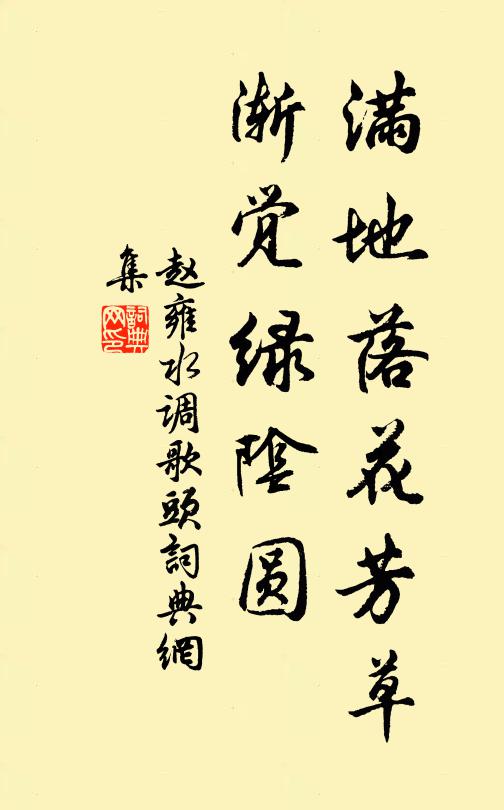 满地落花芳草
渐觉绿陰圆
赵雍水调歌頭詞典網
集
詞典网印